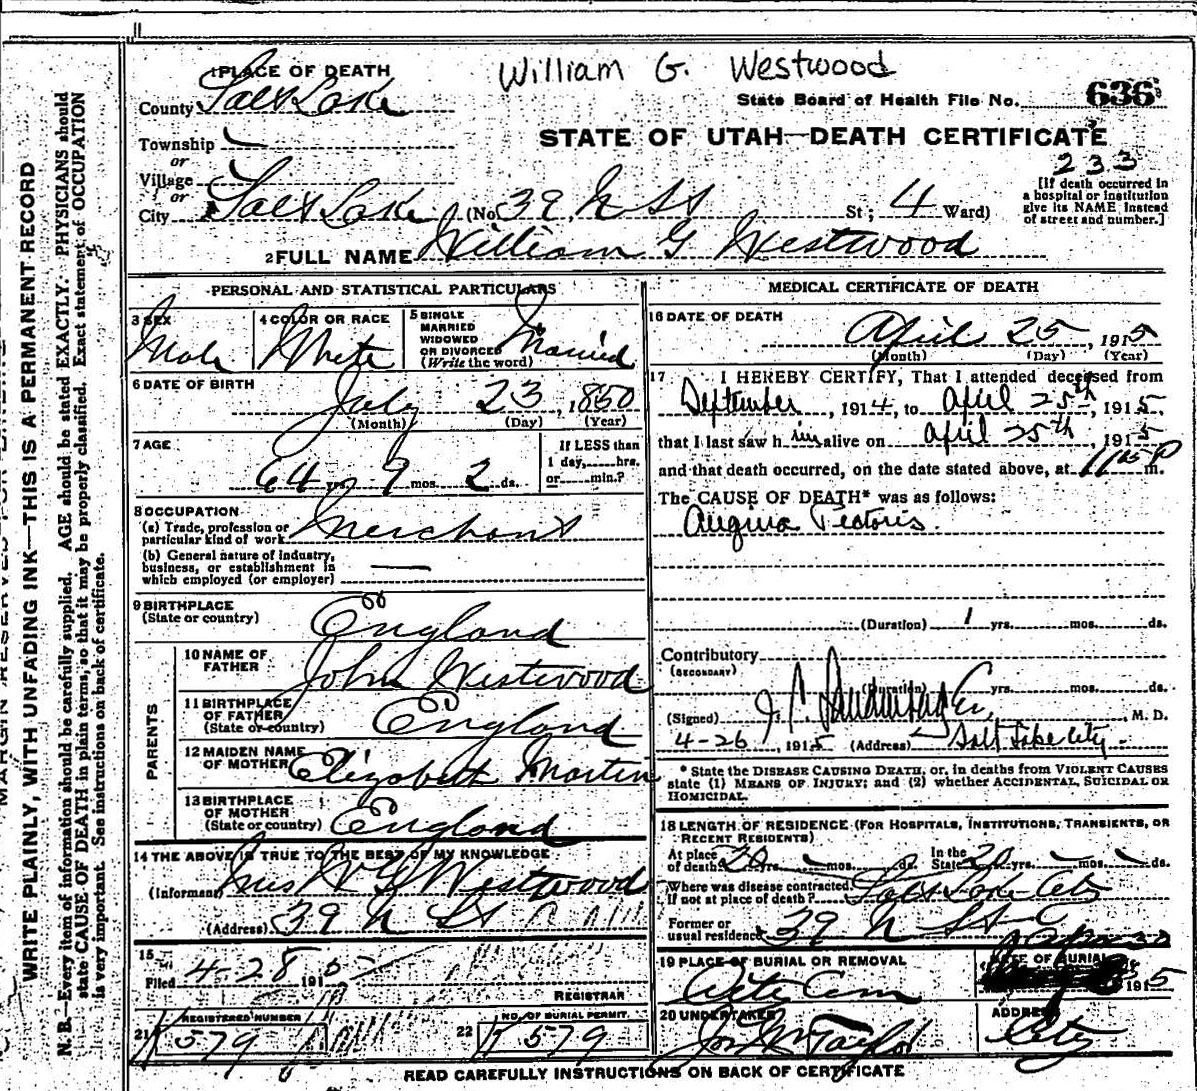 William G. Westwood
1 PLACE OF DEATH
County Salt Lake
State Board of Health File No. 636
Township
or
Village
or
City Salt Lake (No. 39 N St St; 4 Ward)
STATE OF UTAH—DEATH CERTIFICATE
233
[If death occurred in
a hospital or institution
give its NAME instead
of street and number.]
2 FULL NAME William G Westwood
PERSONAL AND STATISTICAL PARTICULARS
3 SEX Male
4 COLOR OR RACE White
5 SINGLE
MARRIED
WIDOWED
OR DIVORCED
(Write the word) Married
6 DATE OF BIRTH
July 23, 1850
(Month) (Day) (Year)
7 AGE
64 yrs 9 mos. 2 ds.
If LESS than
1 day, hrs.
or min.?
8 OCCUPATION
(a) Trade, profession or
particular kind of work Merchant
(b) General nature of industry,
business, or establishment in
which employed (or employer)
9 BIRTHPLACE
(State or country) England
PARENTS
10 NAME OF
FATHER John Westwood
11 BIRTHPLACE
OF FATHER
(State or country) England
12 MAIDEN NAME
OF MOTHER Elizabeth Martin
13 BIRTHPLACE
OF MOTHER
(State or country) England
14 THE ABOVE IS TRUE TO THE BEST OF MY KNOWLEDGE
(Informant) Mrs W G Westwood
(Address) 39 N St
15
Filed 4-28 1915
REGISTRAR
21 REGISTERED NUMBER
579
22 NO. OF BURIAL PERMIT.
579
MEDICAL CERTIFICATE OF DEATH
16 DATE OF DEATH
April 25, 1915
(Month) (Day) (Year)
17 I HEREBY CERTIFY, That I attended deceased from
September, 1914, to April 25th, 1915,
that I last saw him alive on April 25th, 1915
and that death occurred, on the date stated above, at 11 P m.
The CAUSE OF DEATH* was as follows:
Angina Pectoris.
(Duration) 1 yrs. mos. ds.
Contributory
(SECONDARY)
(Duration) yrs. mos. ds.
(Signed) M. D.
4-26, 1915 (Address) Salt Lake City.
* State the DISEASE CAUSING DEATH, or, in deaths from VIOLENT CAUSES
state (1) MEANS OF INJURY; and (2) whether ACCIDENTAL, SUICIDAL OR
HOMICIDAL.
18 LENGTH OF RESIDENCE (FOR HOSPITALS, INSTITUTIONS, TRANSIENTS, OR
RECENT RESIDENTS)
At place
of death 20 yrs. mos. ds.
In the
State 20 yrs. mos. ds.
Where was disease contracted,
If not at place of death? Salt Lake City
Former or
usual residence 39 N St
19 PLACE OF BURIAL OR REMOVAL
City Cem
DATE OF BURIAL
1915
20 UNDERTAKER
Taylor
ADDRESS
City
READ CAREFULLY INSTRUCTIONS ON BACK OF CERTIFICATE
WRITE PLAINLY, WITH UNFADING INK—THIS IS A PERMANENT RECORD
N. B.—Every item of information should be carefully supplied. AGE should be stated EXACTLY. PHYSICIANS should
state CAUSE OF DEATH in plain terms, so that it may be properly classified. Exact statement of OCCUPATION
is very important. See instructions on back of certificate.